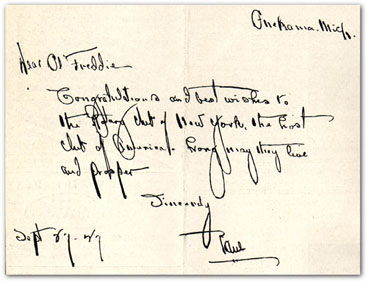 Onekama. Mich.
Dear Ol' Freddie
Congratulations and best wishes to
the Rotary Club of New York, the host
club of America. Long may they live
and prosper
Sincerely
Paul
Sept 27-47